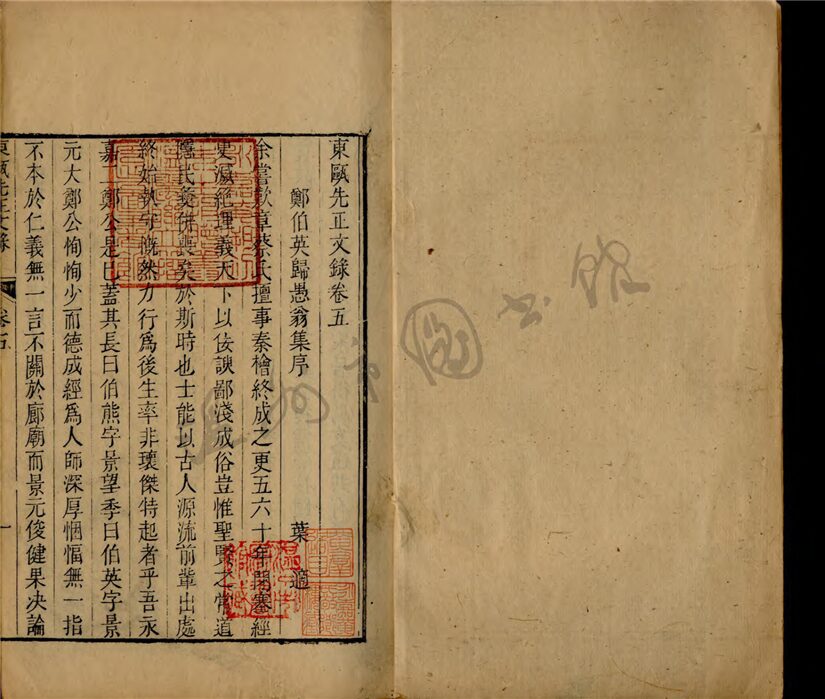 東甌先正文錄卷五
鄭伯英歸愚翁集序
葉適
余嘗歎章蔡氏擅事秦檜終成之更五六十年閉塞經
史滅絕理義天下以佞諛鄙淺成俗豈惟聖賢之常道
隱民彝併喪矣於斯時也士能以古人源流前輩出處
終始執守慨然力行爲後生率非瓌傑特起者乎吾永
嘉二鄭公是已蓋其長曰伯熊字景望季曰伯英字景
元大鄭公恂恂少而德成經爲人師深厚悃愊無一指
不本於仁義無一言不關於廊廟而景元俊健果決論
東甌先正文錄
卷五
一
溫州市圖书館